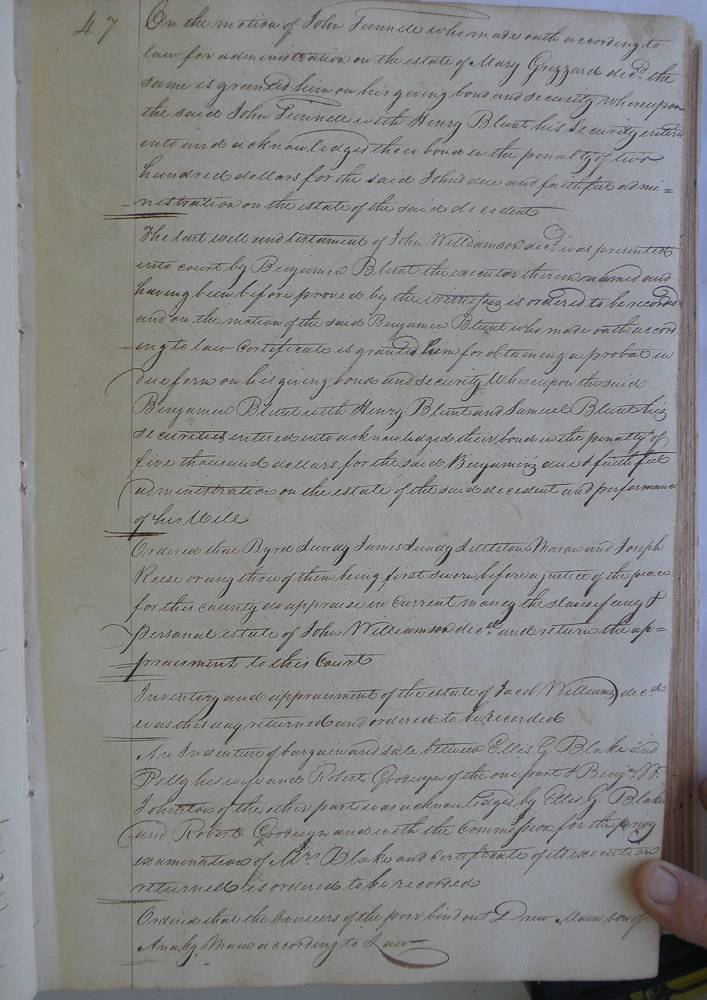 47
On the motion of John Funnell who made oath according to
law for administration on the estate of Mary Grizzard decd. the
same is granted him on his giving bond and security whereupon
the said John Funnell with Henry Blunt his Security entered
into and acknowledged their bond in the penalty of two
hundred dollars for the said John's due and faithful admi=
=nistration on the estate of the said decedent
The last will and testament of John Williamson decd. was presented
into court by Benjamin Blunt the executor therein named and
having been before proved by the witnesses is ordered to be recorded
and on the motion of the said Benjamin Blunt who made oath accord
=ing to law Certificate is granted him for obtaining a probat in
due form on his giving bond and security Whereupon the said
Benjamin Blunt with Henry Blunt and Samuel Blunt his
securities entered into acknowledged their bond in the penalty of
five thousand dollars for the said Benjamin's due & faithful
administration on the estate of the said decedent and performance
of his Will
Ordered that Byrd Lundy James Lundy Littleton Mason and Joseph
Reese or any three of them being first sworn before a justice of the peace
for this county do appraise in Current money the slaves if any &
personal estate of John Williamson decd. and return the ap=
=praisment to this Court
Inventory and appraisment of the estate of Jacob Williams decd
was this day returned and ordered to be recorded
An Indenture of bargain and sale between Ellis G Blake and
Polly his wife and Robert Goodwyn of the one part & Benja. W.
Johnston of the other part was acknowledged by Ellis G Blake
and Robert Goodwyn and with the Commission for the privy
examination of Mrs. Blake and Certificate of its execution
returned is ordered to be recorded
Ordered that the Overseers of the poor bind out Drew Mann son of
Mann according to Law